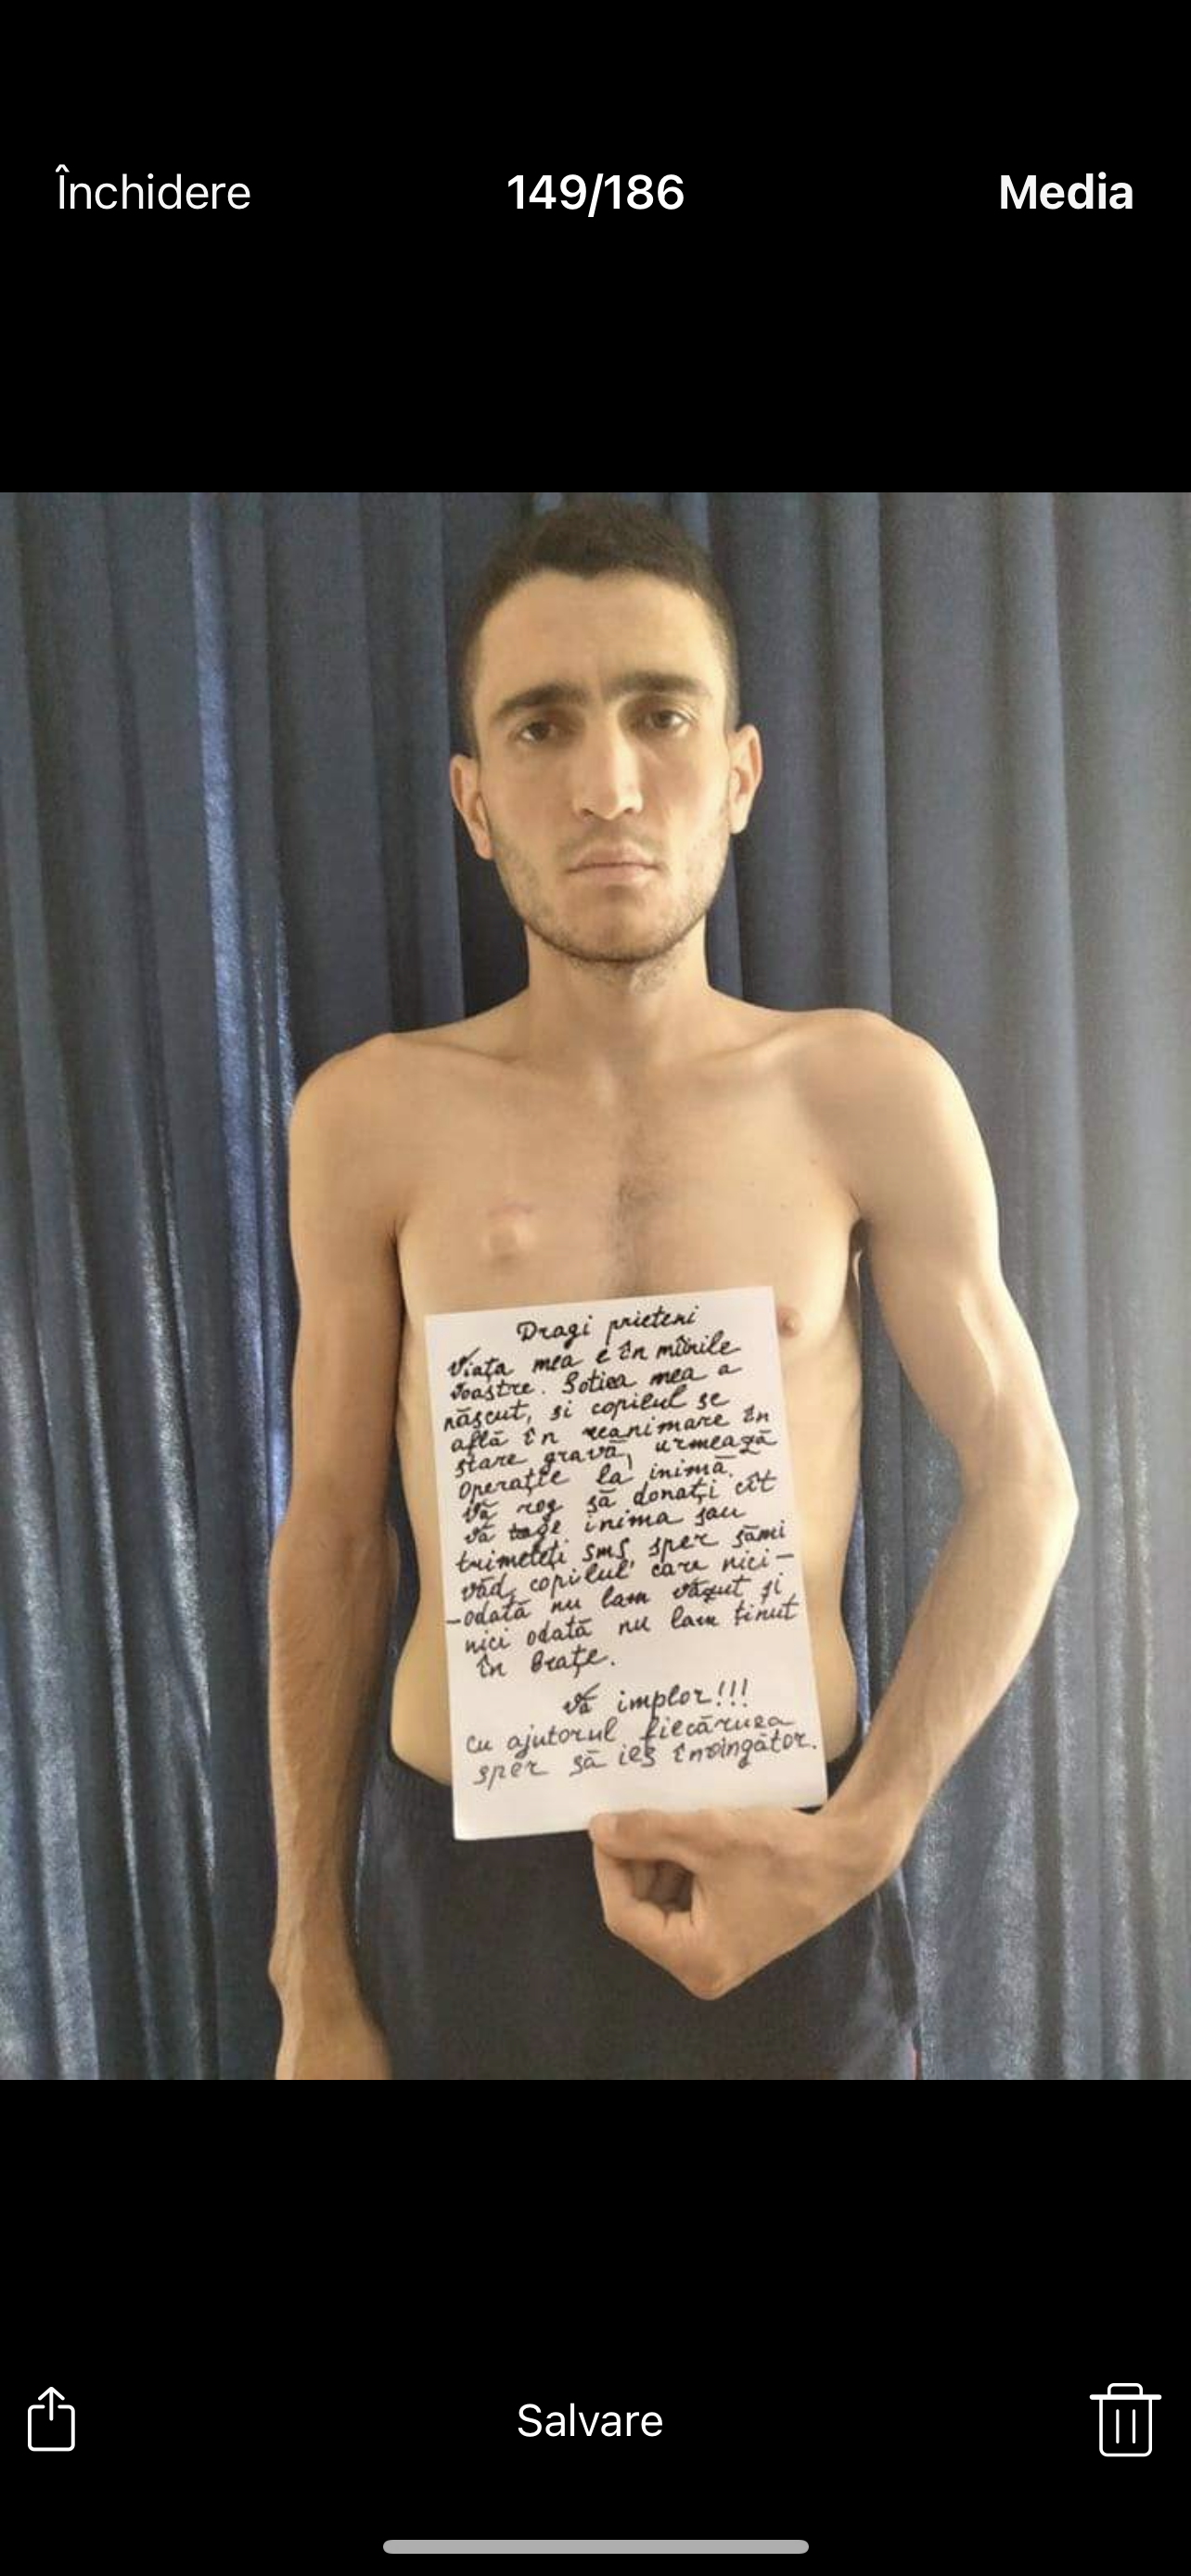 Închidere
149/186
Media
Dragi prieteni
Viața mea e în mînile
voastre. Soția mea a
născut, și copilul se
află în reanimare în
stare gravă, urmează
operație la inimă.
Vă rog să donați cît
vă trage inima sau
trimeteți sms, sper sămi
văd copilul, care nici-
-odată nu lam văzut și
nici odată nu lam ținut
în brațe.
Vă implor!!!
Cu ajutorul fiecăruea
sper să ies învingător.
Salvare